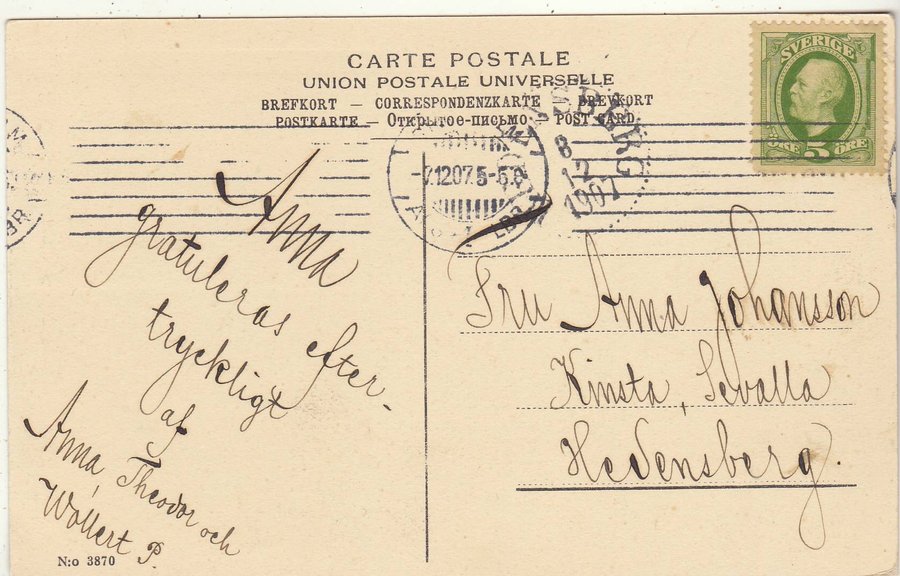 CARTE POSTALE
UNION POSTALE UNIVERSELLE
BREFKORT — CORRESPONDENZKARTE — BREVKORT
POSTKARTE — Открытое-письмо — POST CARD.
SVERIGE
ÖRE 5 ÖRE
-7.12.07.5-5.6
8
12
1907
Anna
gratuleras efter-
tryckligt
af
Anna, Theodor och
Wollert P.
Fru Anna Johansson
Kinsta, Sevalla
Hedensberg.
N:o 3870